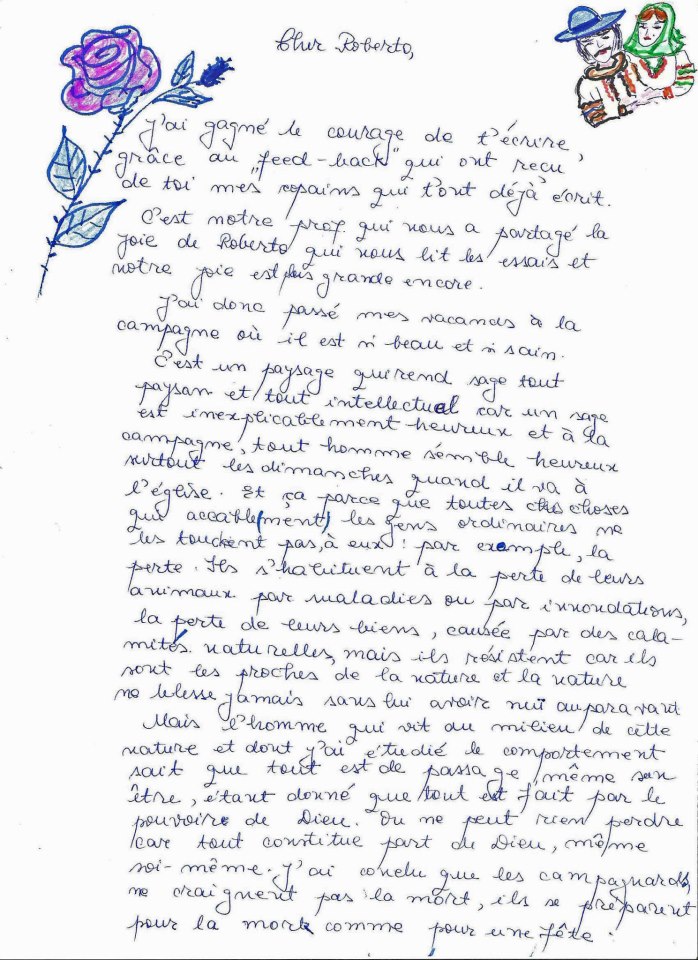 Cher Roberto,
J'ai gagné le courage de t'écrire,
grâce au „feed-back" qui ont reçu
de toi mes copains qui t'ont déjà écrit.
C'est notre prof qui nous a partagé la
joie de Roberto qui nous lit les essais et
notre joie est plus grande encore.
J'ai donc passé mes vacances à la
campagne où il est si beau et si sain.
C'est un paysage qui rend sage tout
paysan et tout intellectuel car un sage
est inexplicablement heureux et à la
campagne, tout homme semble heureux
surtout les dimanches quand il va à
l'église. Et ça parce que toutes choses
qui accable(ment) les gens ordinaires ne
les touchent pas, à eux: par exemple, la
perte. Ils s'habituent à la perte de leurs
animaux par maladies ou par innondations,
la perte de leurs biens, causée par des cala-
mités naturelles, mais ils résistent car ils
sont les proches de la nature et la nature
ne blesse jamais sans lui avoir nuï auparavant
Mais l'homme qui vit au milieu de cette
nature et dont j'ai étudié le comportement
sait que tout est de passage, même son
être, étant donné que tout est fait par le
pouvoir de Dieu. On ne peut rien perdre
car tout constitue part de Dieu, même
soi-même. J'ai conclu que les campagnards,
ne craignent pas la mort, ils se préparent
pour la mort comme pour une fête.